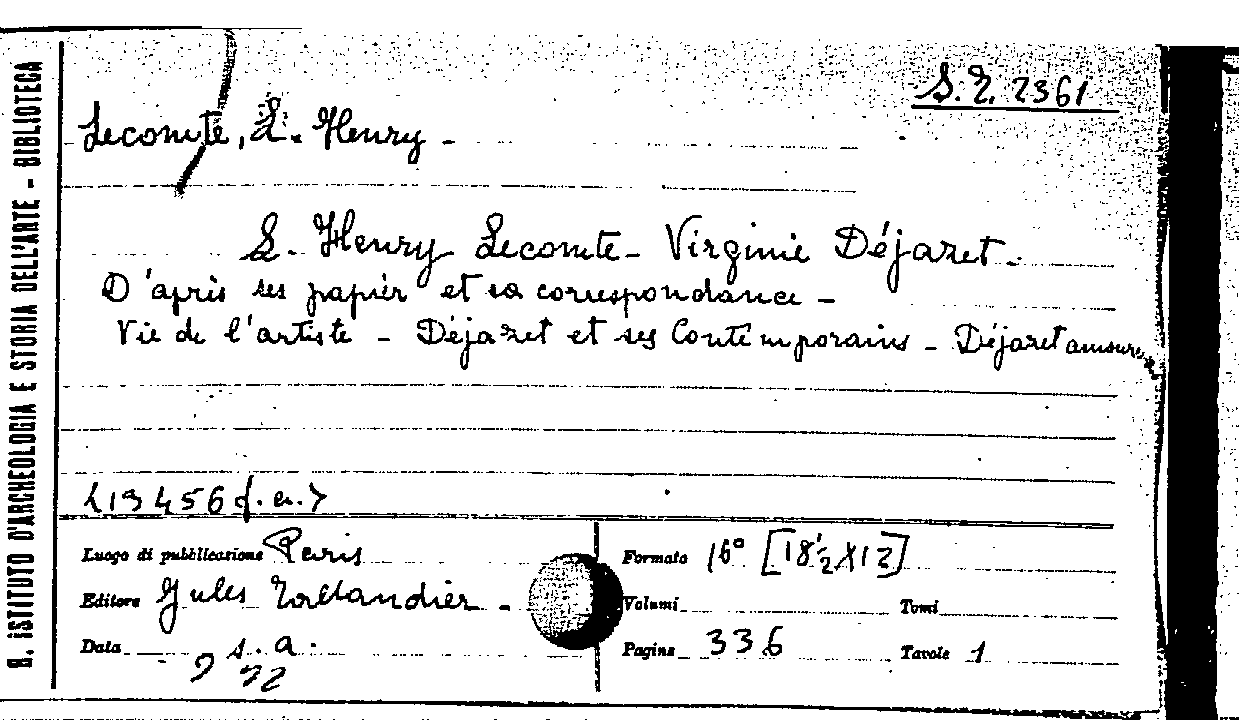 B. ISTITUTO D'ARCHEOLOGIA E STORIA DELL'ARTE - BIBLIOTECA
S.R. 2361
Lecomte, L. Henry -
L. Henry Lecomte - Virginie Déjazet -
D'après ses papier et sa correspondance -
Vie de l'artiste - Déjazet et ses Contemporains - Déjazet
<13456 f.a.>
Luogo di pubblicazione Paris
Editore Jules Tallandier -
Data s.a.
Formato 16° [18½X12]
Volumi Tomi
Pagine 336 Tavole 1